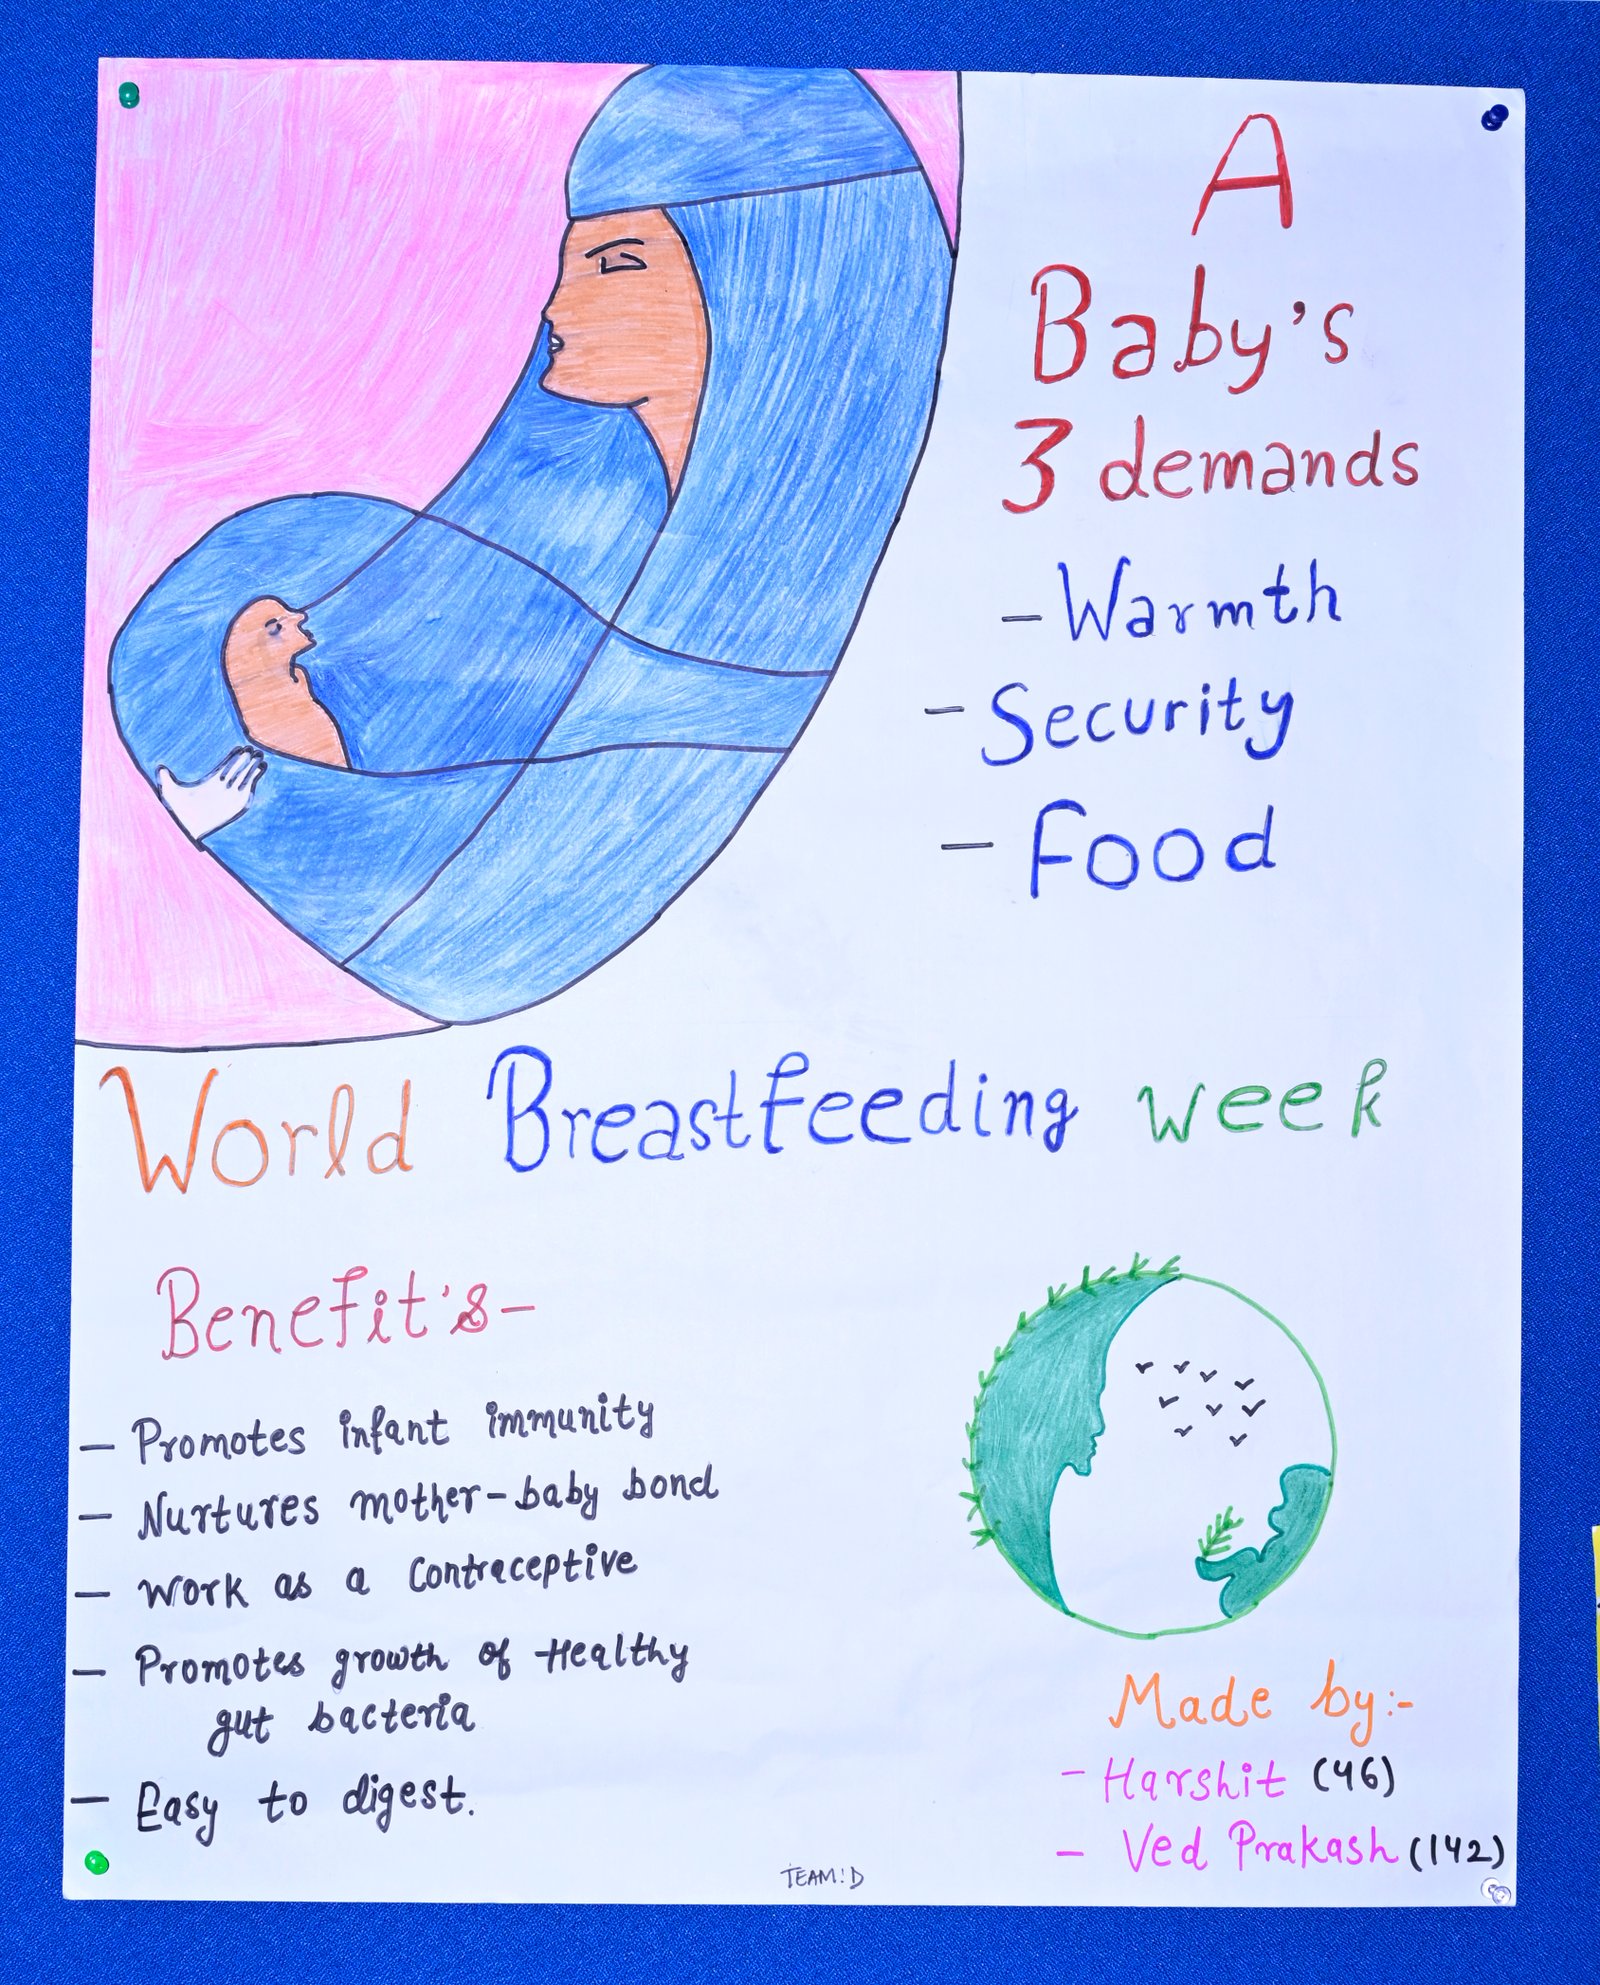 A
Baby's
3 demands
- Warmth
- Security
- Food
World Breastfeeding week
Benefit's-
- Promotes infant immunity
- Nurtures mother-baby bond
- Work as a Contraceptive
- Promotes growth of Healthy
gut bacteria
- Easy to digest.
Made by:-
- Harshit (46)
- Ved Prakash (142)
TEAM:D